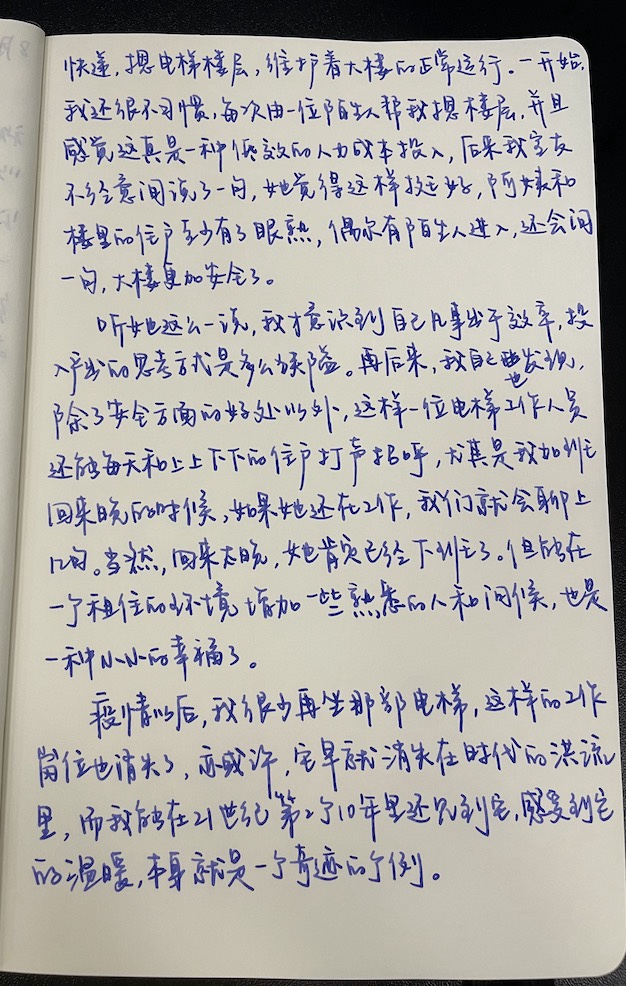 快递，摁电梯楼层，维护着大楼的正常运行。一开始，
我还很不习惯，每次由一位陌生人帮我摁楼层，并且
感觉这真是一种低效的人力成本投入，后来我室友
不经意间说了一句，她觉得这样挺好，阿姨和
楼里的住户至少有了眼熟，偶尔有陌生人进入，还会问
一句，大楼更加安全了。
听她这么一说，我才意识到自己凡事出于效率，投
入产出的思考方式是多么狭隘。再后来，我自己也发现，
除了安全方面的好处以外，这样一位电梯工作人员
还能每天和上上下下的住户打声招呼，尤其是我加班
回来晚的时候，如果她还在工作，我们就会聊上
几句。当然，回来太晚，她肯定已经下班了。但能在
一个租住的环境增加一些熟悉的人和问候，也是
一种小小的幸福了。
疫情以后，我很少再坐那部电梯，这样的工作
岗位也消失了，亦或许，它早就消失在时代的洪流
里，而我能在21世纪第2个10年里还见到它，感受到它
的温暖，本身就是一个奇迹的个例。